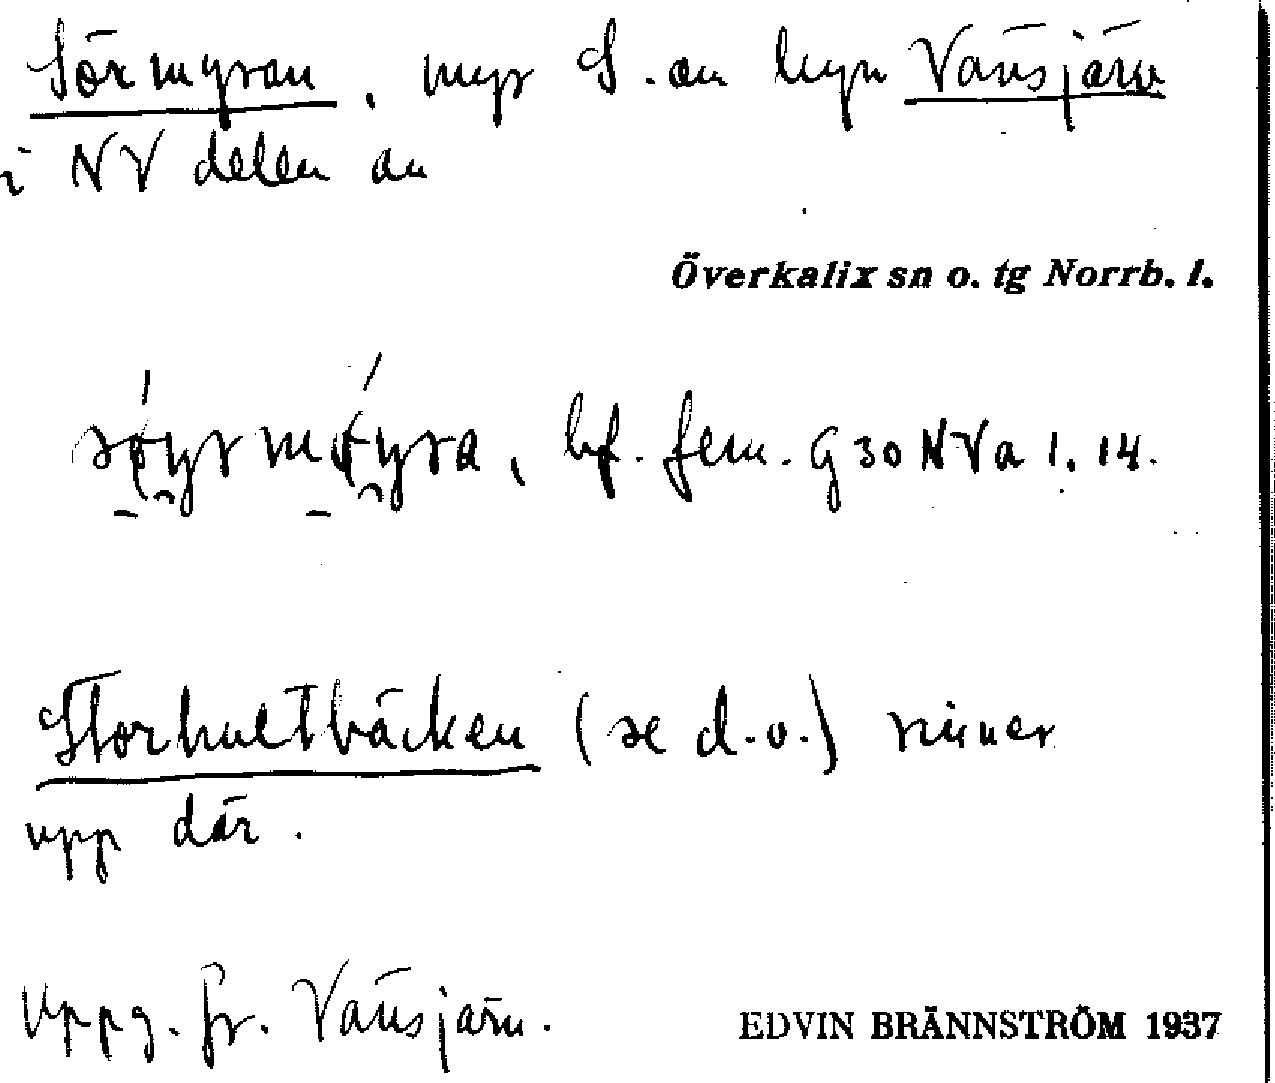 Sörmyran, myr S. av byn Vänsjärv
i NV delen av
Överkalix sn o. tg Norrb. l.
bf. fem. G 30 NV a 1. 14.
Storhultbäcken (se d.o.) rinner
upp där.
Uppg. fr. Vänsjärv.
EDVIN BRÄNNSTRÖM 1937